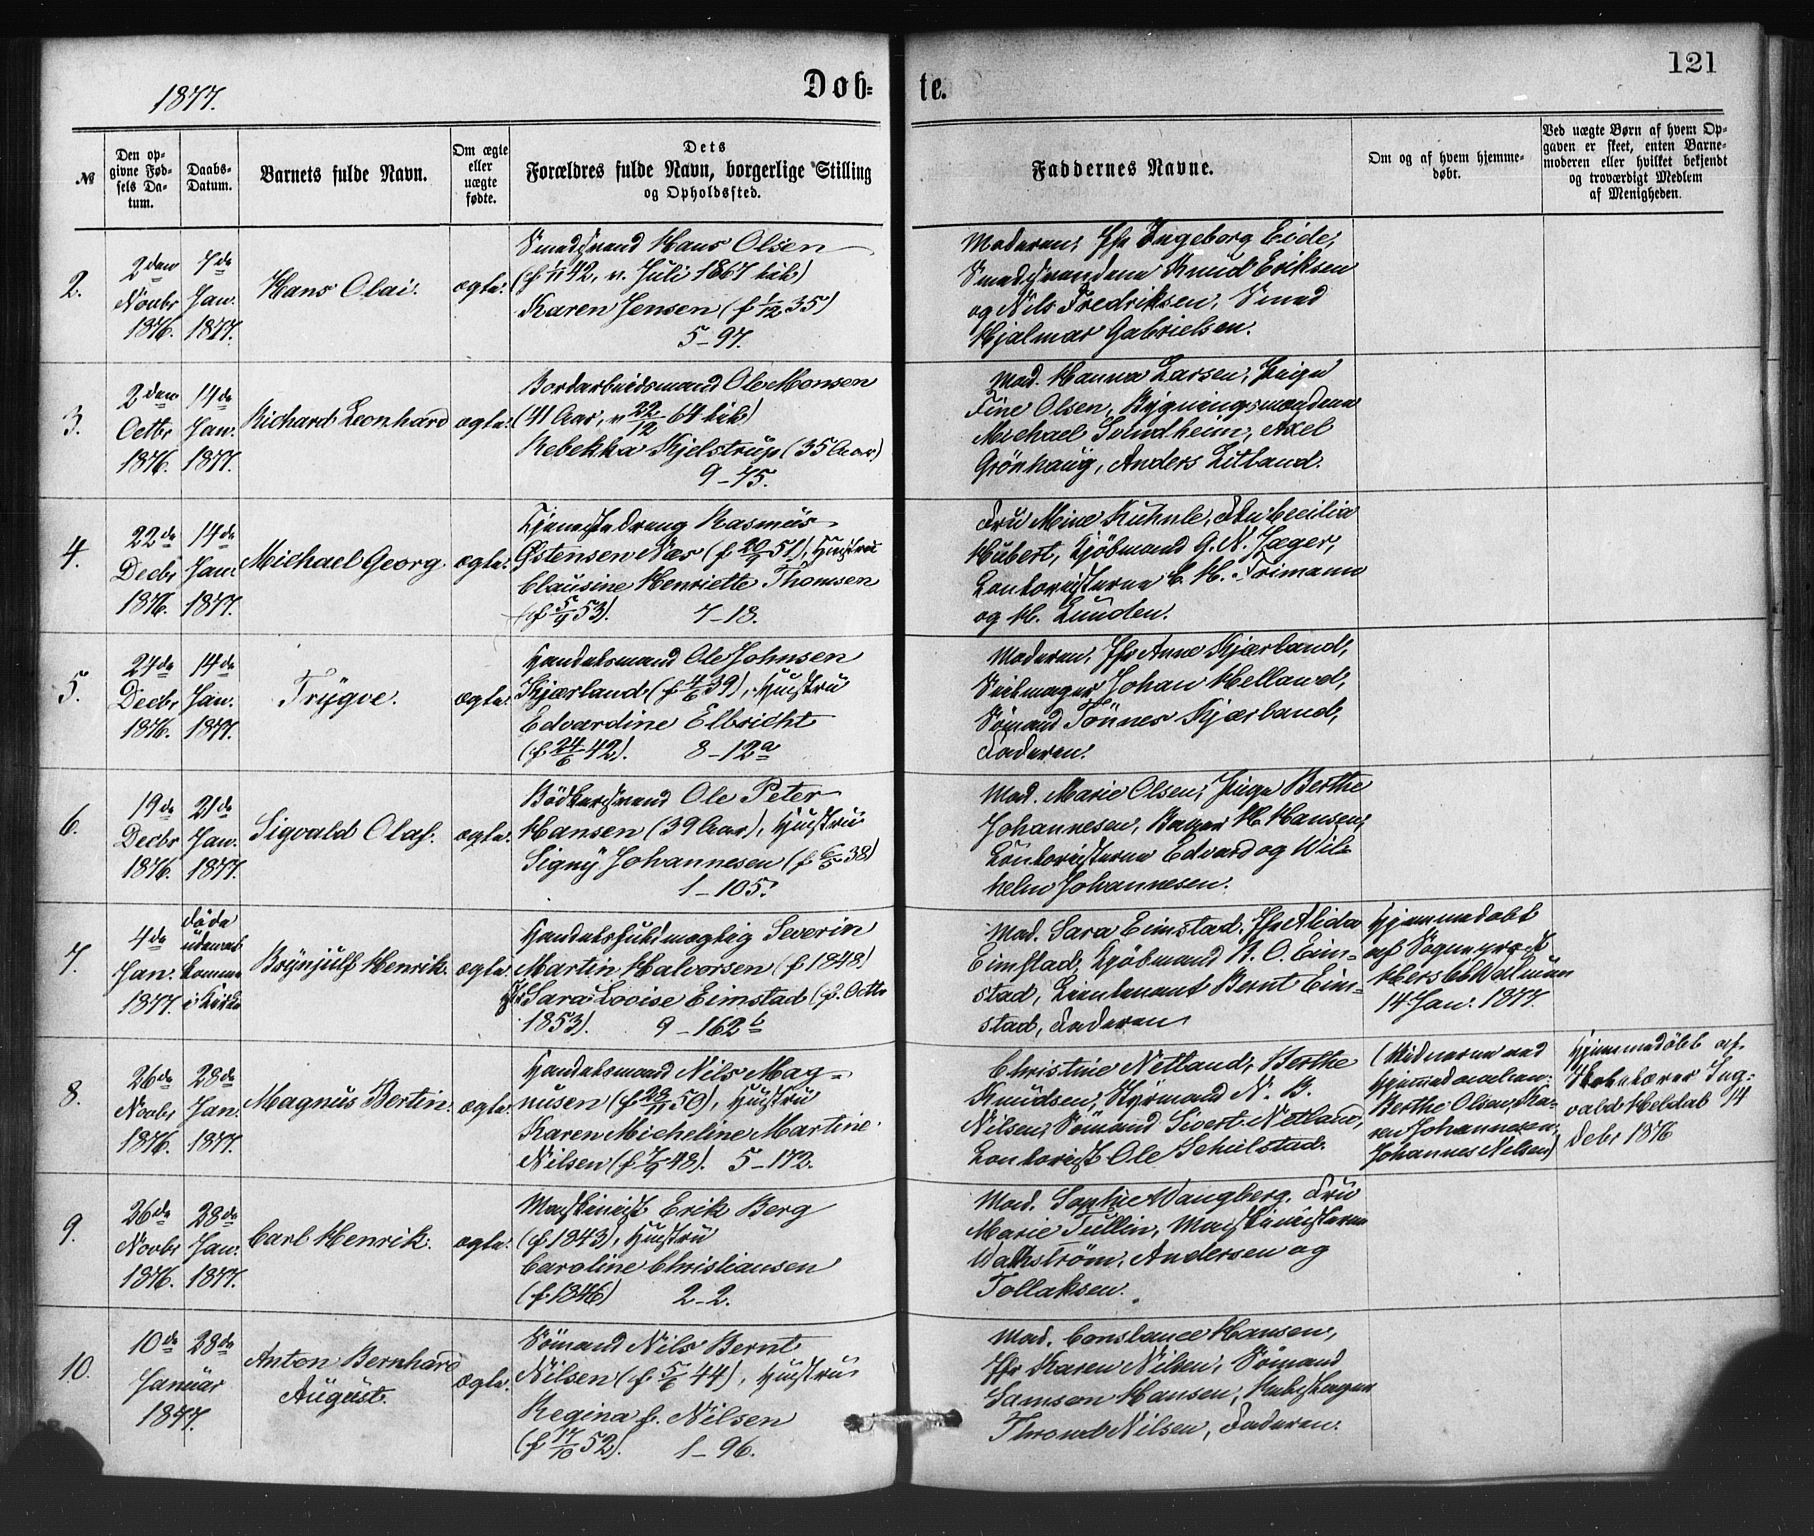 121
1877.
Døb-
te.
№
Den op-
givne Fød-
sels Da-
tum.
Daabs-
Datum.
Barnets fulde Navn.
Om ægte
eller
uægte
fødte.
Dets
Forældres fulde Navn, borgerlige Stilling
og Opholdssted.
Faddernes Navne.
Om og af hvem hjemme-
døbt.
Ved uægte Børn af hvem Op-
gaven er skeet, enten Barne-
moderen eller hvilket bekjendt
og troværdigt Medlem
af Menigheden.
2.
2den
Novbr
1876.
7de
Jan.
1877.
Hans Olai.
ægte.
Smedsvend Hans Olsen
(f 42, v. Juli 1867 hib)
Karen Jensen (f 1/12 35)
5-97.
Moderen, Jfr Ingeborg Eide,
Smedsvendene Knud Eriksen
og Nils Fredriksen, Smed
Hjalmar Gabrielsen.
3.
2den
Octbr
1876.
14de
Jan.
1877.
Richard Leonhard
ægte.
Bordarbeidsmand Ole Monsen
(41 Aar, v 22/12 64 hib)
Rebekka Kjelstrup (35 Aar)
9-75.
Mad. Hanna Larsen, Pige
Fine Olsen, Bygningsmændene
Michael Svindheim, Axel
Grönhaug, Anders Litland.
4.
22de
Decbr
1876.
14de
Jan.
1877.
Michael Georg.
ægte.
Tjenestedreng Rasmus
Østensen Næs (f 20/9 51), Hustru
Clausine Henriette Thomsen
(f 5/9 53). 7-18.
Fru Mine Kuhnle, Fru Cecilia
Hubert, Kjöbmand G. N. Jæger,
Kontoristerne C. H. Frimann
og H. Lunden.
5.
24de
Decbr
1876.
14de
Jan.
1877.
Trygve.
ægte.
Handelsmand Ole Johnsen
Kjærland (f 4/6 39), Hustru
Edvardine Elbricht
(f. 24/6 42). 8-12a
Moderen, Jfr Anne Kjærland,
Seilmager Johan Helland,
Sömand Tönnes Kjærland,
Faderen.
6.
19de
Decbr
1876.
21de
Jan.
1877.
Sigvald Olaf.
ægte.
Bödkersvend Ole Peter
Hansen (39 Aar), Hustru
Signy Johannesen (f 6/5 38)
1-105.
Mad. Marie Olsen, Pige Berthe
Johannesen, Bager H. Hansen,
Kontoristerne Edvard og Wil-
helm Johannesen.
7.
4de
Jan.
1877.
Döde
udenat
komme
i Kirke
Brynjulf Henrik.
ægte.
Handelsfuldmægtig Severin
Martin Halvorsen (f 1848)
Sara Lovise Eimstad (f. Octbr
1853). 9-162b
Mad. Sara Eimstad, Jfr Alida
Eimstad, Kjöbmand N. O. Eim-
stad, Lieutenant Bernt Eim-
stad, Faderen
Hjemmedøbt
af Sogneprest
Hersleb Walnum
14 Jan. 1877.
8.
26de
Novbr
1876.
28de
Jan.
1877.
Magnus Bertin.
ægte.
Handelsmand Nils Mag-
nusen (f 28/11 50), Hustru
Karen Micheline Martine
Nilsen (f 7/9 48). 5-172.
Christine Netland, Berthe
Knudsen, Styrmand N. B.
Nilsen, Sömand Sivert Netland,
Kontorist Ole Schulstad.
(Vidnerne ved
Hjemmedaaben:
Berthe Olsen, Ka-
ren Johannesen,
Johannes Nilsen)
Hjemmedöbt af
Skolelærer Ing-
vald Heldal 14
Debr 1876
9.
26de
Novbr
1876.
28de
Jan.
1877.
Carl Henrik.
ægte.
Maskinist Erik Berg
(f. 1843), Hustru
Caroline Christiansen
(f. 1846) 2-2.
Mad. Sophie Wangberg, Fru
Marie Tullin, Maskinisterne
Wallström, Andersen og
Tollaksen.
10.
10de
28de
Januar
1877.
Anton Bernhard
August.
ægte.
Sömand Nils Bernt
Nilsen (f. 5/6 44), Hustru
Regina f. Nilsen
(f 17/10 52). 1-96.
Mad. Constance Hansen,
Jfr Karen Nilsen, Sömand
Samson Hansen, Rebslager
Thrond Nilsen, Faderen.